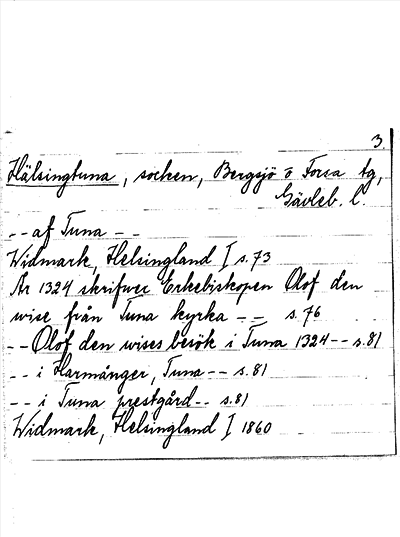 3.
Hälsingtuna, socken, Bergsjö o Forsa tg,
Gävleb. l.
-- af Tuna --
Widmark, Helsingland I s. 73
År 1324 skrifwer Erkebiskopen Olof den
wise från Tuna kyrka -- s. 76
-- Olof den wises besök i Tuna 1324 -- s. 81
-- i Harmånger, Tuna -- s. 81
-- i Tuna prestgård -- s. 81
Widmark, Helsingland I 1860